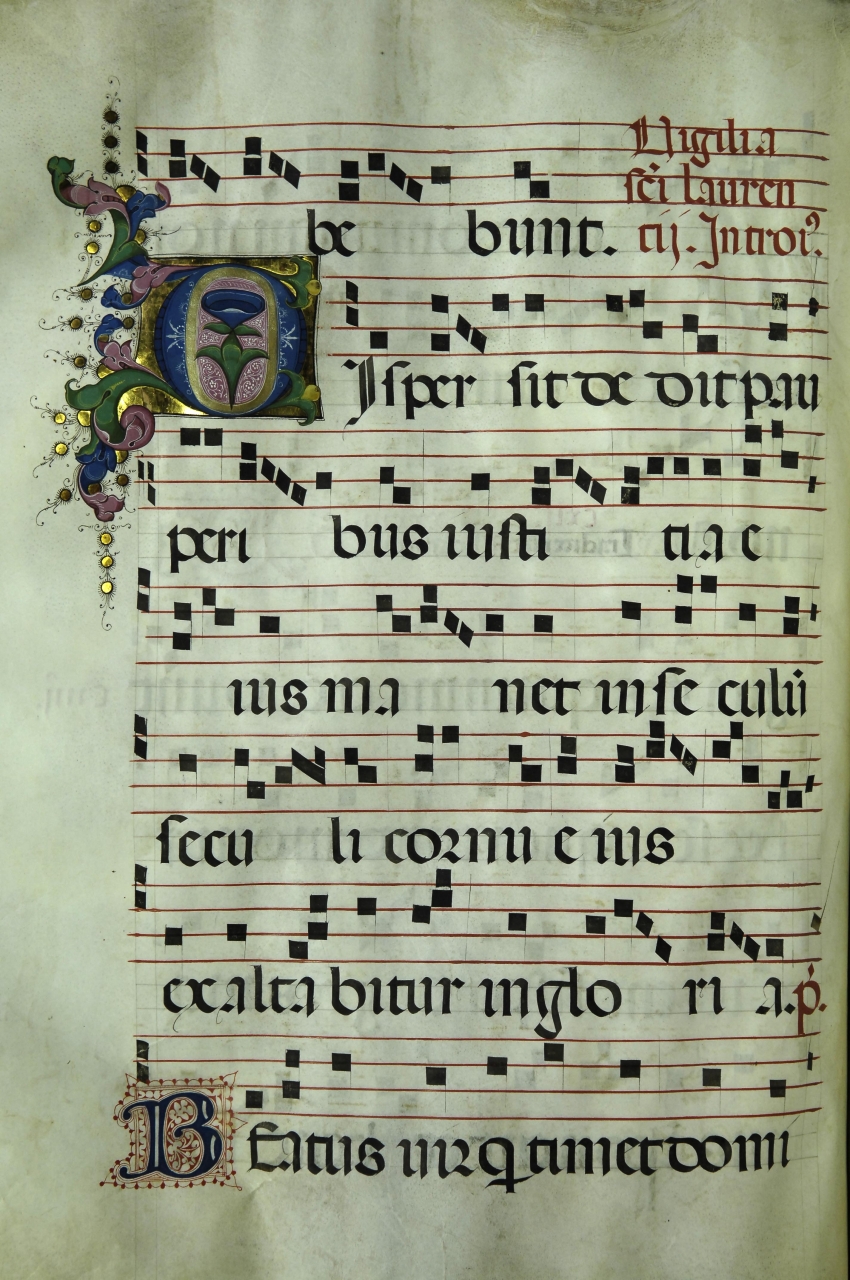 Vigilia
sc̄i lauren
be bunt. tij. Introitꝰ.
DIsper sit de dit pau
peri bus iusti tia e
ius ma net in se culū
secu li cornu e ius
exalta bitur inglo ri a. p̄.
BEatus uir q timet domi